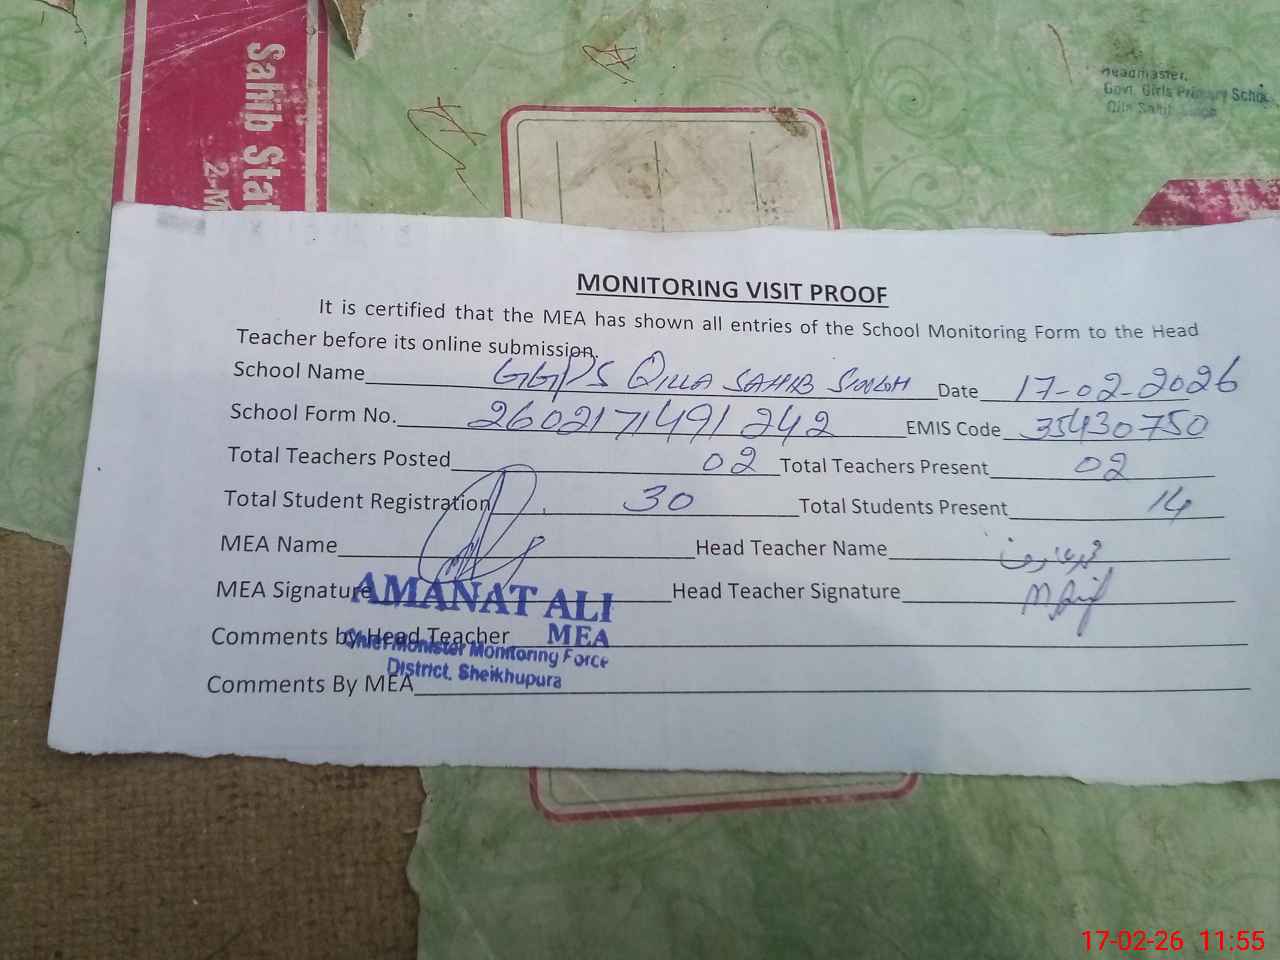 Sahib Stat
2-M
Headmaster,
Govt. Girls Primary School
Qila Sahib
MONITORING VISIT PROOF
It is certified that the MEA has shown all entries of the School Monitoring Form to the Head
Teacher before its online submission.
School Name GGPS QILLA SAHIB SINGH Date 17-02-2026
School Form No. 2602171491242 EMIS Code 35430750
Total Teachers Posted 02 Total Teachers Present 02
Total Student Registration 30 Total Students Present 14
MEA Name Head Teacher Name
MEA Signature Head Teacher Signature
AMANAT ALI
MEA
Comments by Head Teacher
Chief Minister Monitoring Force
District, Sheikhupura
Comments By MEA
17-02-26 11:55